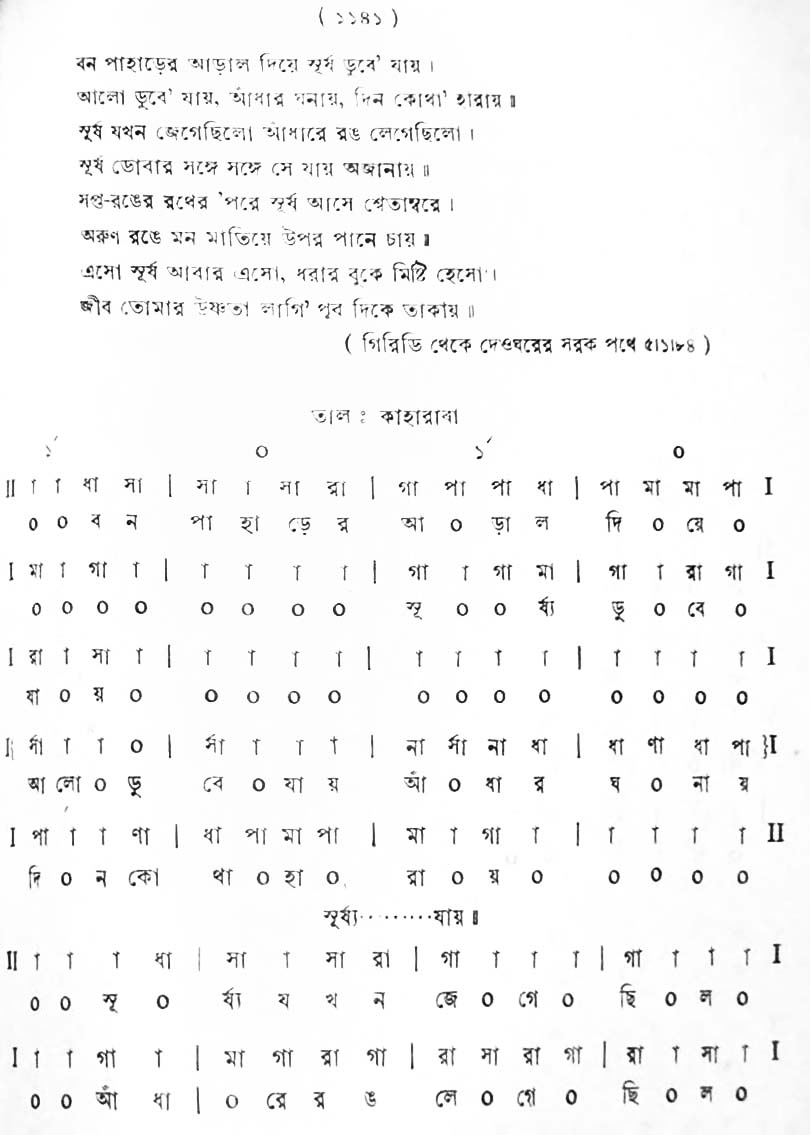 ( ১১৪১ )
বন পাহাড়ের আড়াল দিয়ে সূর্য ডুবে' যায় ।
আলো ডুবে' যায়, আঁধার ঘনায়, দিন কোথা' হারায় ॥
সূর্য যখন জেগেছিলো আঁধারে রঙ লেগেছিলো ।
সূর্য ডোবার সঙ্গে সঙ্গে সে যায় অজানায় ॥
সপ্ত-রঙের রথের 'পরে সূর্য আসে শ্বেতাম্বরে ।
অরুণ রঙে মন মাতিয়ে উপর পানে চায় ॥
এসো সূর্য আবার এসো, ধরার বুকে মিষ্টি হেসো ।
জীব তোমার উষ্ণতা লাগি' পূব দিকে তাকায় ॥
( গিরিডি থেকে দেওঘরের সরক পথে ৫।১।৮৪ )
তাল : কাহারাবা
১´ ০ ১´ ০
II া া ধা সা | সা া সা রা | গা পা পা ধা | পা মা মা পা I
০ ০ ব ন পা হা ড়ে র আ ০ ড়া ল দি ০ য়ে ০
I মা া গা া | া া া া | গা া গা মা | গা া রা গা I
০ ০ ০ ০ ০ ০ ০ ০ সূ ০ ০ র্য্য ডু ০ বে ০
I রা া সা া | া া া া | া া া া | া া া া I
যা ০ য় ০ ০ ০ ০ ০ ০ ০ ০ ০ ০ ০ ০ ০
I{ র্সা া া ০ | র্সা া া া | না র্সা না ধা | ধা ণা ধা পা }I
আ লো ০ ডু বে ০ যা য় আঁ ০ ধা র ঘ ০ না য়
I পা া া ণা | ধা পা মা পা | মা া গা া | া া া া II
দি ০ ন কো থা ০ হা ০ রা ০ য় ০ ০ ০ ০ ০
সূর্য্য·········যায় ॥
II া া া ধা | সা া সা রা | গা া া া | গা া া া I
০ ০ সূ ০ র্য্য য খ ন জে ০ গে ০ ছি ০ ল ০
I া া গা া | মা গা রা গা | রা সা রা গা | রা া সা া I
০ ০ আঁ ধা | ০ রে র ঙ লে ০ গে ০ ছি ০ ল ০